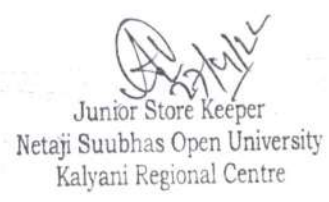 27/4/22
Junior Store Keeper
Netaji Suubhas Open University
Kalyani Regional Centre